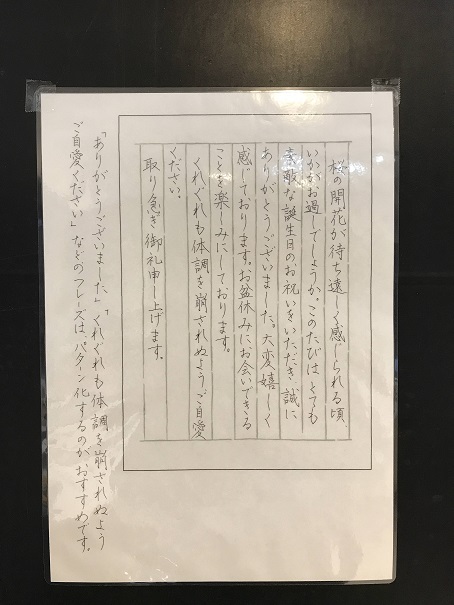 桜の開花が待ち遠しく感じられる頃
いかがお過しでしょうか。このたびはとても
素敵な誕生日のお祝いをいただき誠に
ありがとうございました。大変嬉しく
感じております。お盆休みにお会いできる
ことを楽しみにしております。
くれぐれも体調を崩されぬようご自愛
ください。
取り急ぎ御礼申し上げます。
「ありがとうございました」「くれぐれも体調を崩されぬよう
ご自愛ください」などのフレーズは、パターン化するのが、おすすめです。